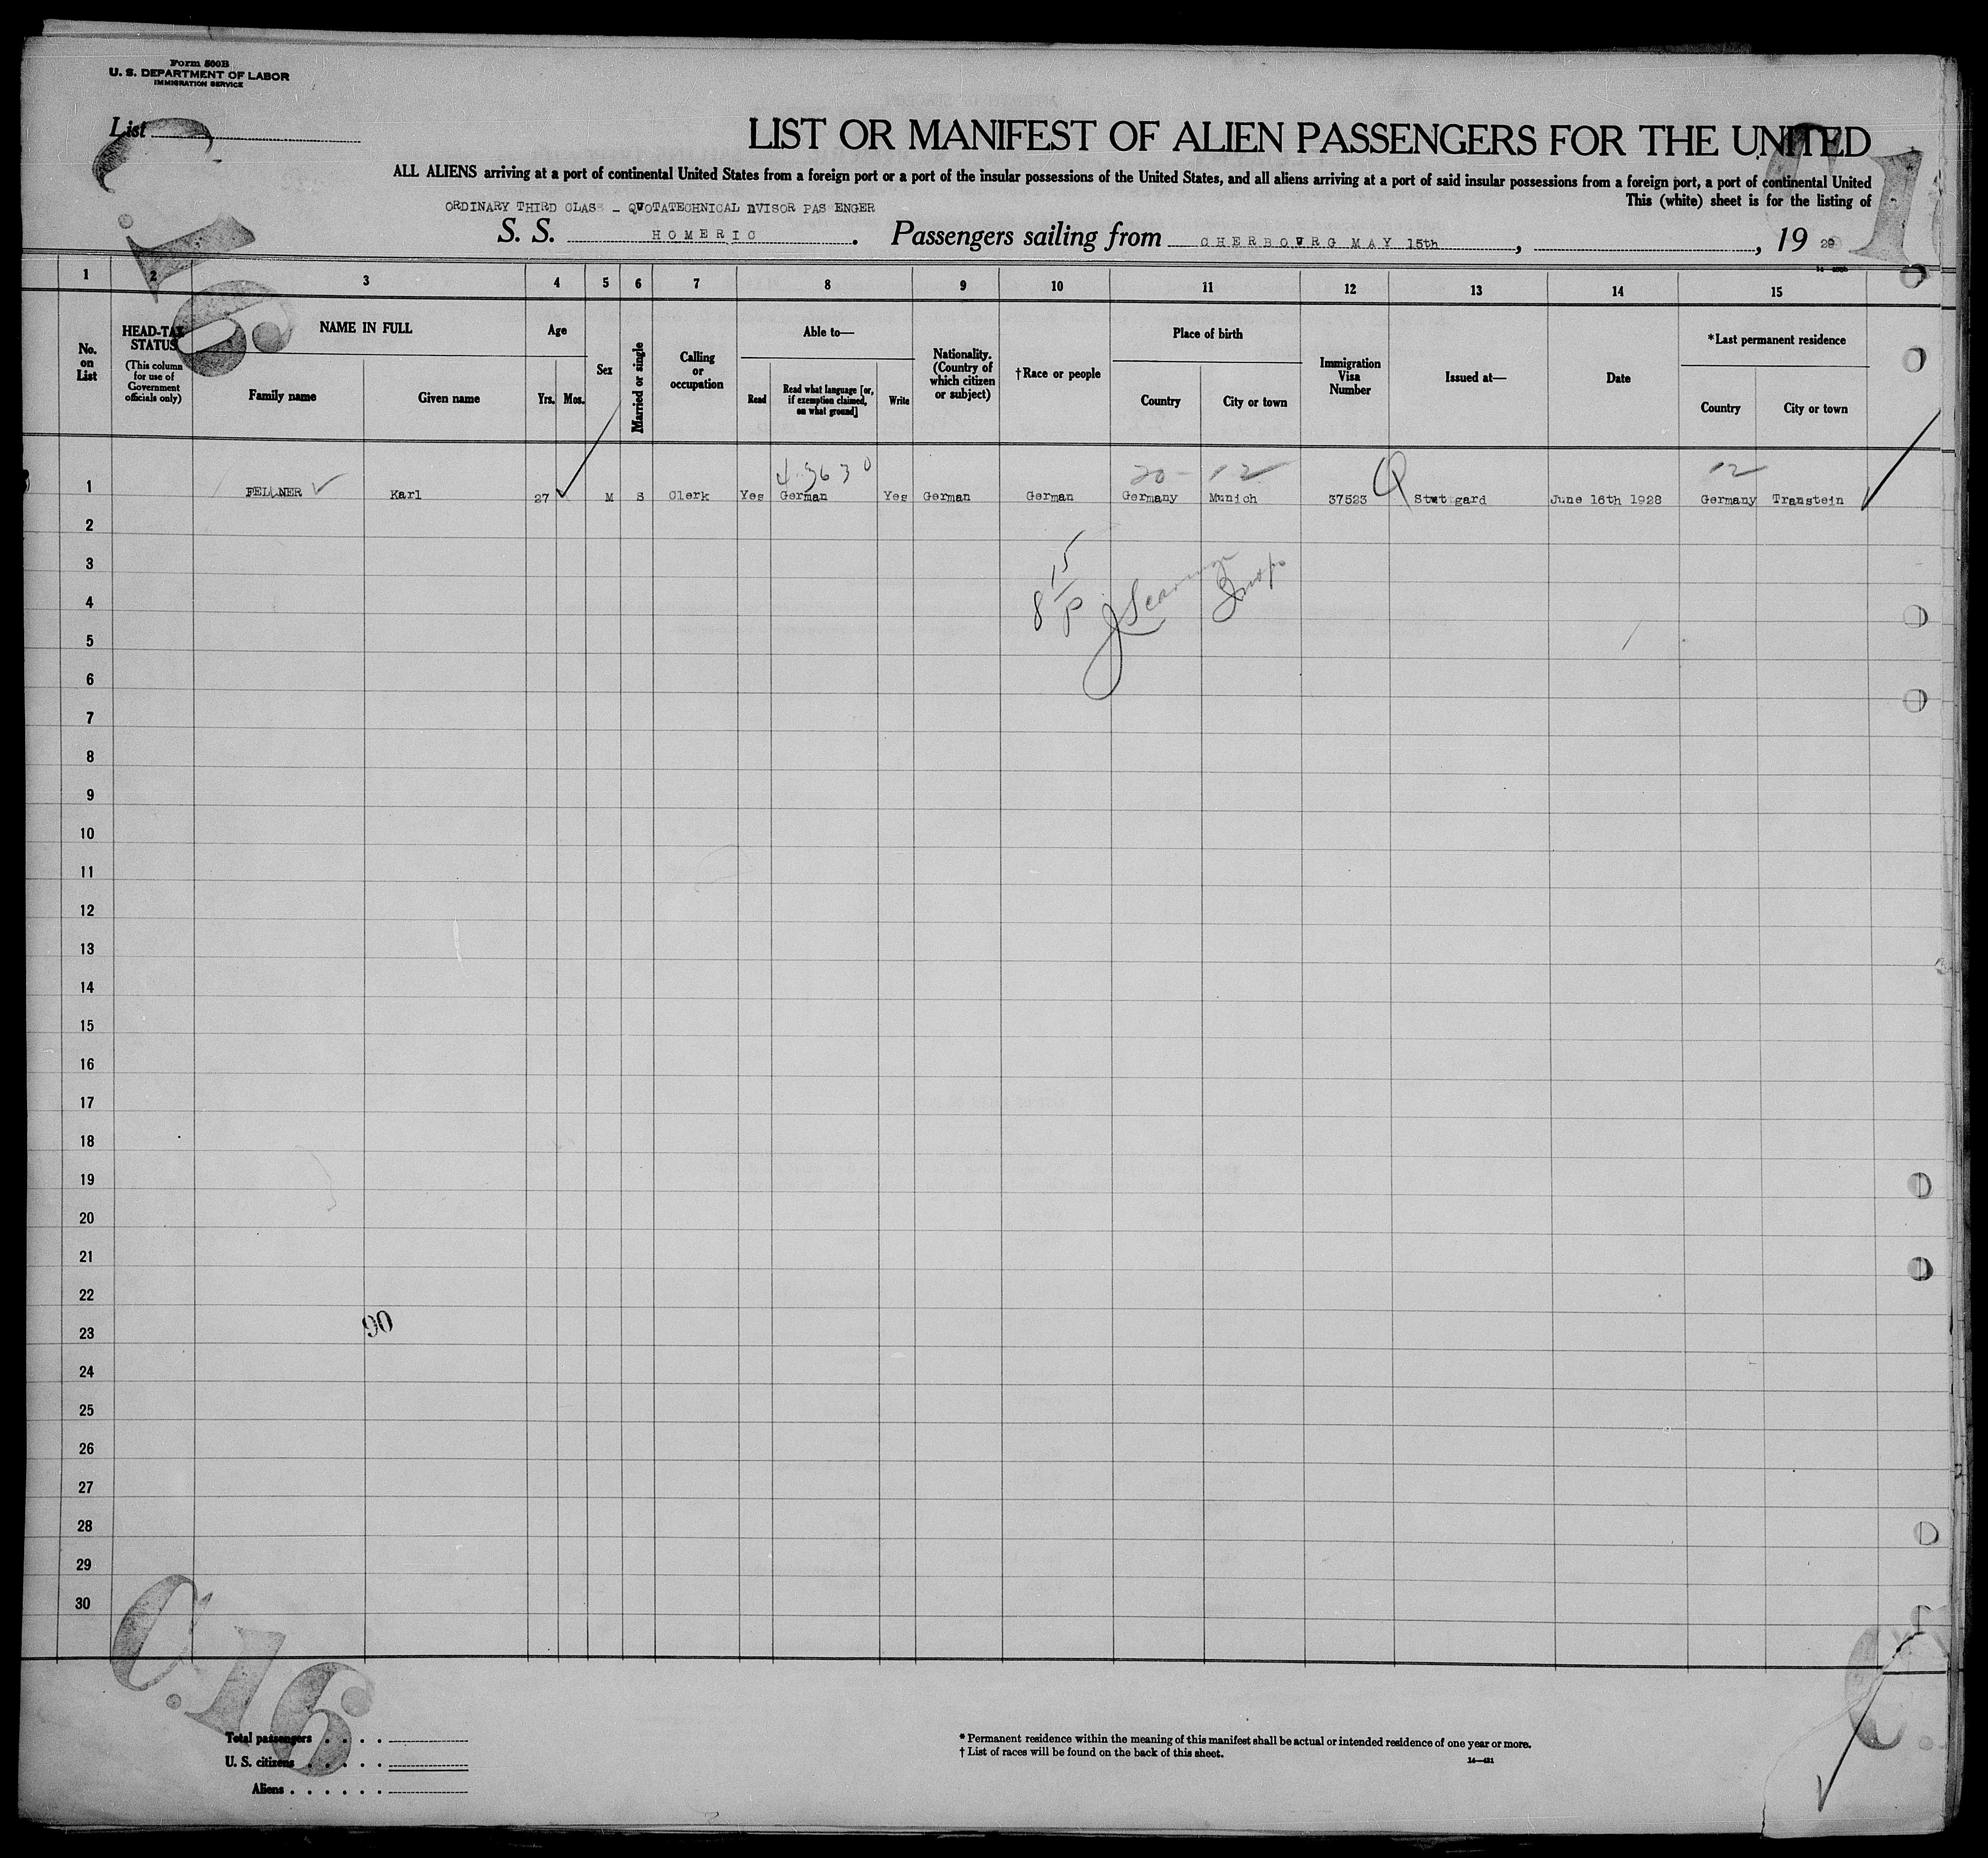 Form 500B
U. S. DEPARTMENT OF LABOR
IMMIGRATION SERVICE
List
LIST OR MANIFEST OF ALIEN PASSENGERS FOR THE UNITED
ALL ALIENS arriving at a port of continental United States from a foreign port or a port of the insular possessions of the United States, and all aliens arriving at a port of said insular possessions from a foreign port, a port of continental United
This (white) sheet is for the listing of
ORDINARY THIRD CLASS - QUOTATECHNICAL DVISOR PAS ENGER
S. S. HOMERIC . Passengers sailing from CHERBOURG MAY 15th , , 19 29
1 2 3 4 5 6 7 8 9 10 11 12 13 14 15
No. on List
HEAD-TAX STATUS
(This column for use of Government officials only)
NAME IN FULL
Family name Given name
Age
Yrs. Mos.
Sex
Married or single
Calling or occupation
Able to—
Read
Read what language [or, if exemption claimed, on what ground]
Write
Nationality. (Country of which citizen or subject)
†Race or people
Place of birth
Country City or town
Immigration Visa Number
Issued at—
Date
*Last permanent residence
Country City or town
20 - 12 12
1 FELLNER Karl 27 M S Clerk Yes German Yes German German Germany Munich 37523 Q Stuttgard June 16th 1928 Germany Transtein
2
3
4
5
6
7
8
9
10
11
12
13
14
15
16
17
18
19
20
21
22
23
24
25
26
27
28
29
30
8 15 P
90
C.16
Total passengers . . . .
U. S. citizens . . . . .
Aliens . . . . . .
* Permanent residence within the meaning of this manifest shall be actual or intended residence of one year or more.
† List of races will be found on the back of this sheet.
14—421